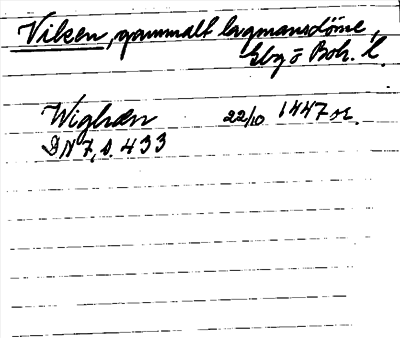 Viken, gammalt lagmansdöme,
Gbg o Boh. L.
Wighen 22/10 1447 or.
DN 7, s. 433